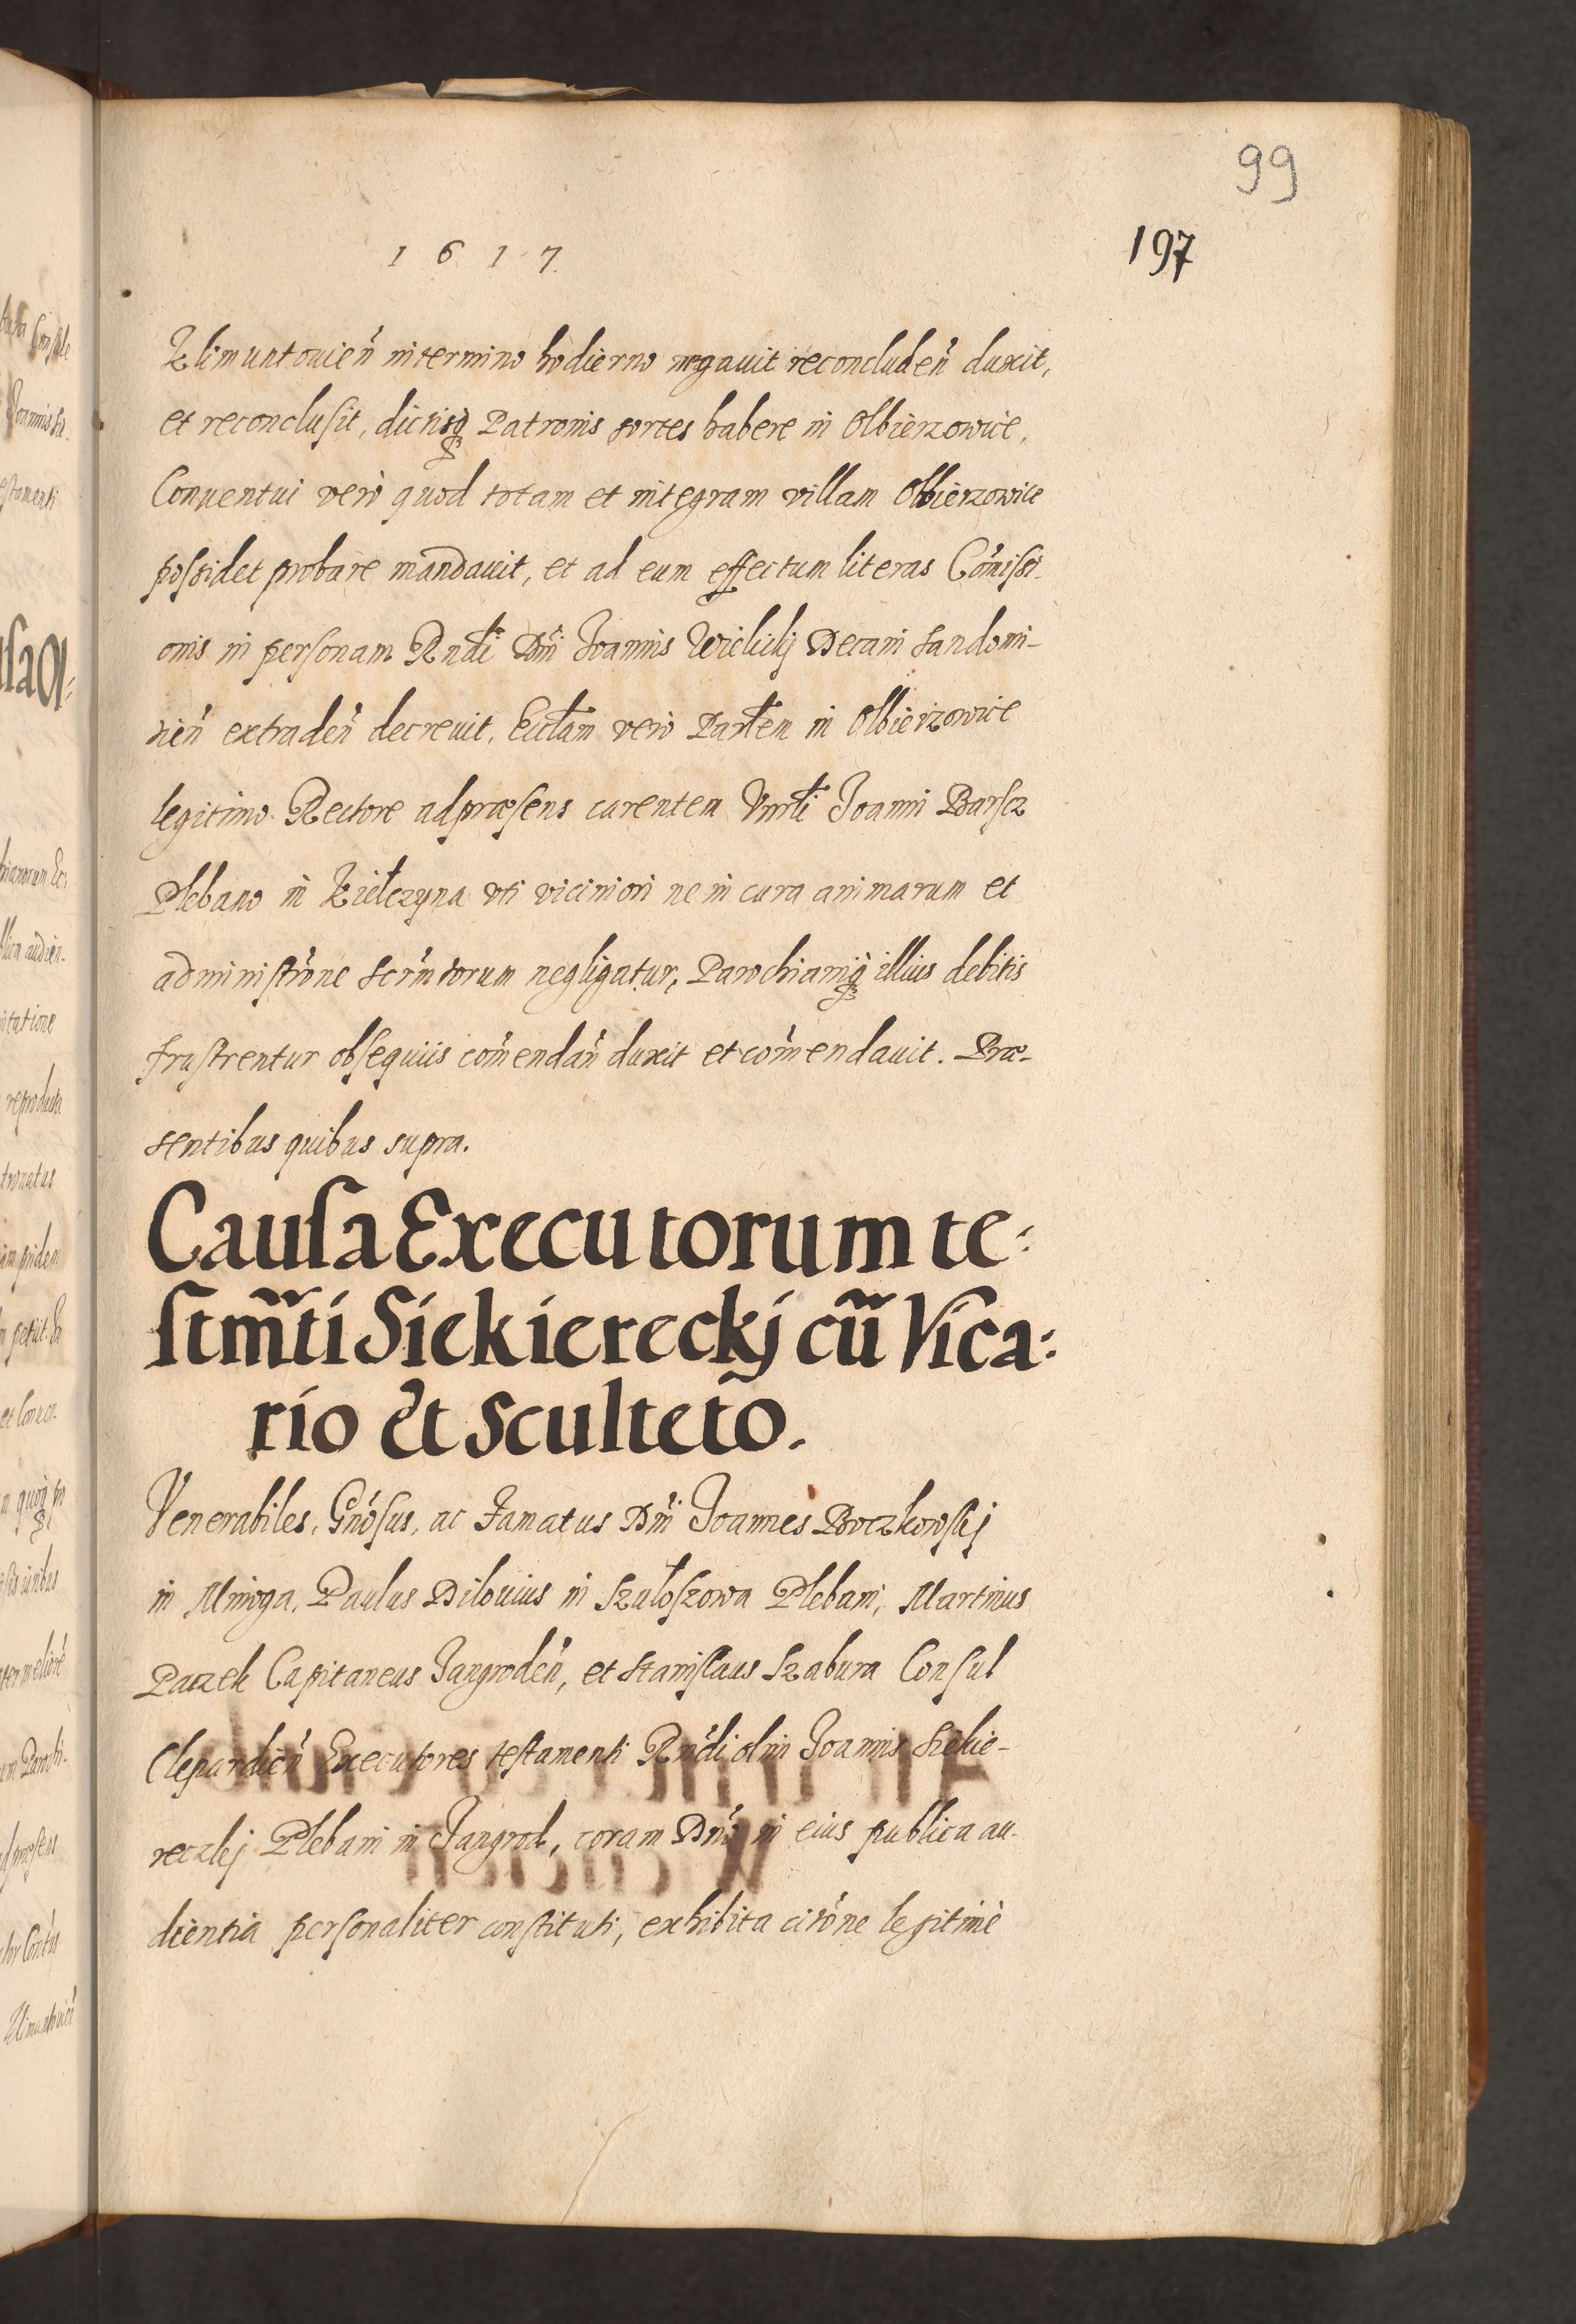 99
197
1617.
Klimuntouień in termino hodierno negauit reconcludeń duxit,
et reconclusit, dictisq Patronis sortes habere in Olbierzowice,
Conuentui verò quod totam et integram villam Olbierzowice
possidet probare mandauit, et ad eum effectum literas Comissi-
onis in personam Rndi Dni Joannis Wielicki Decani Sandomi-
rień extradeń decreuit. Ecclam verò Parlem in Olbierzowice
legitimo Rectore ad præsens carentem Vnrli Joanni Barscz
Plebano in Kiełczyna vti viciniori ne in cura animarum et
administrone Scrmtorum negligatur, Parochianiq illius debitis
frustrentur obsequiis comendań duxit et comendauit. Præ-
sentibus quibus supra.
Causa Executorum te:
stm̃ti Siekiereckj cũ Vica:
rio et Sculteto.
Venerabiles, Gnosus, ac Famatus Dni Joannes Boczkowskj
in Minoga, Paulus Dilouius in Szułoszowa Plebani, Martinus
Paczek Capitaneus Jangrodeń, et Stanislaus Szabura Consul
Clepardień Executores testamenti Rndi olim Joannis Siekie-
reczkj Plebani in Jangrod, coram Dno in eius publica au-
dientia personaliter constituti, exhibita citone legitimè